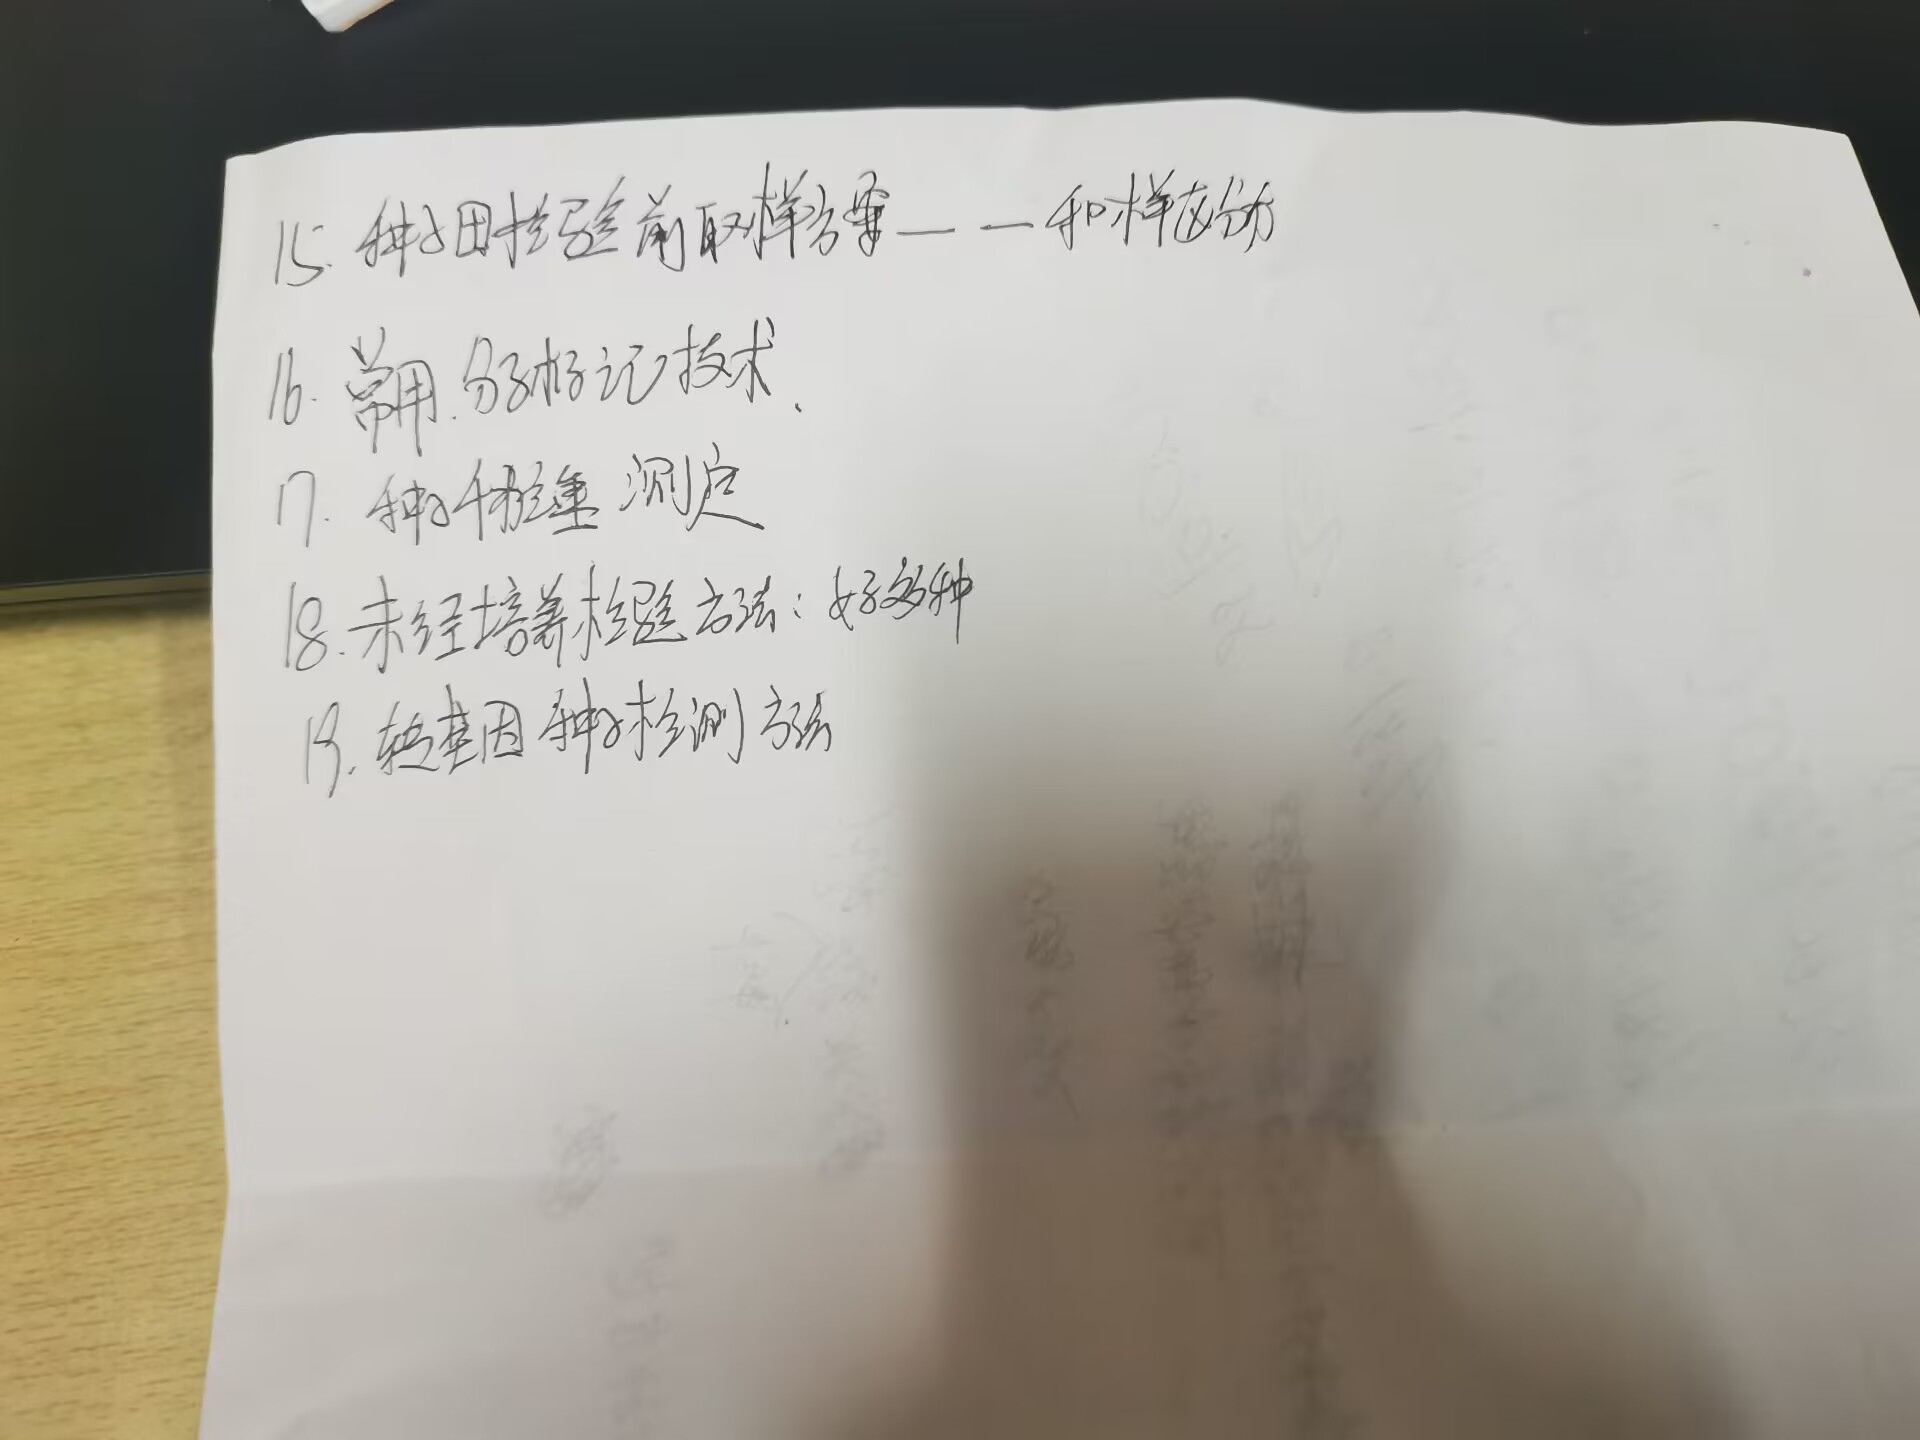 15. 种子田检验前取样方案———和样区分
16. 常用.分子标记技术.
17. 种子千粒重测定
18. 未经培养检验方法：好多种
19. 转基因种子检测方法